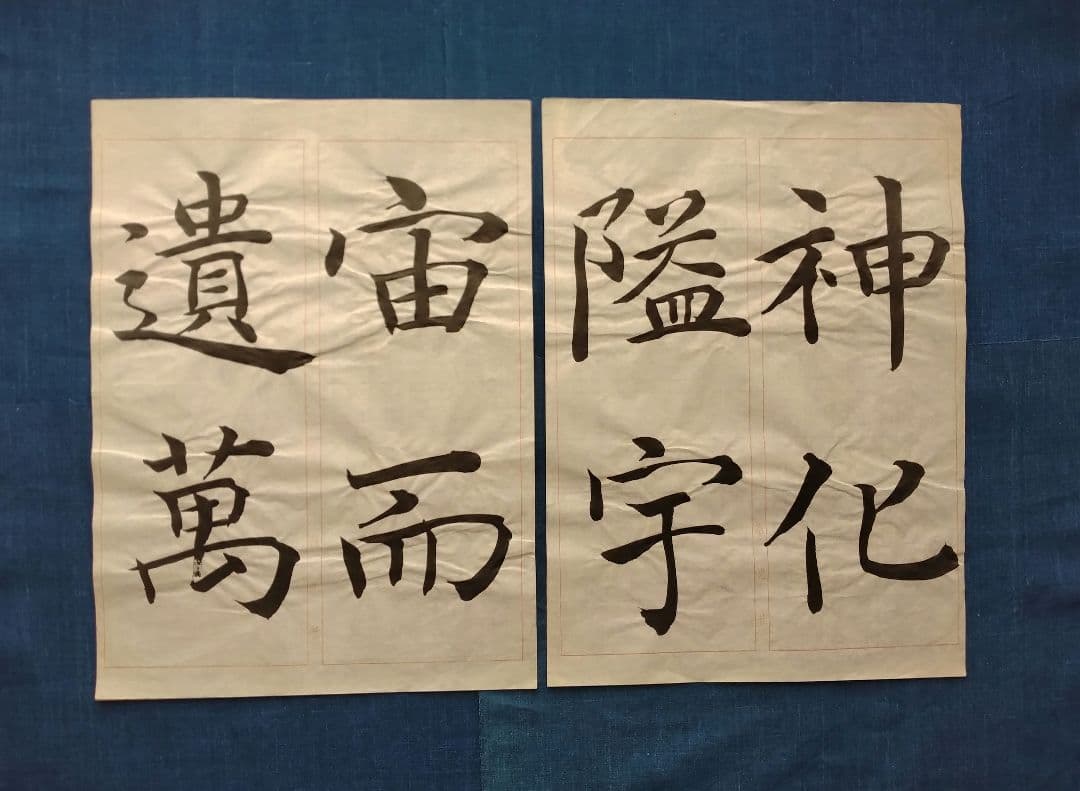 神化
隘宇
宙而
遺萬